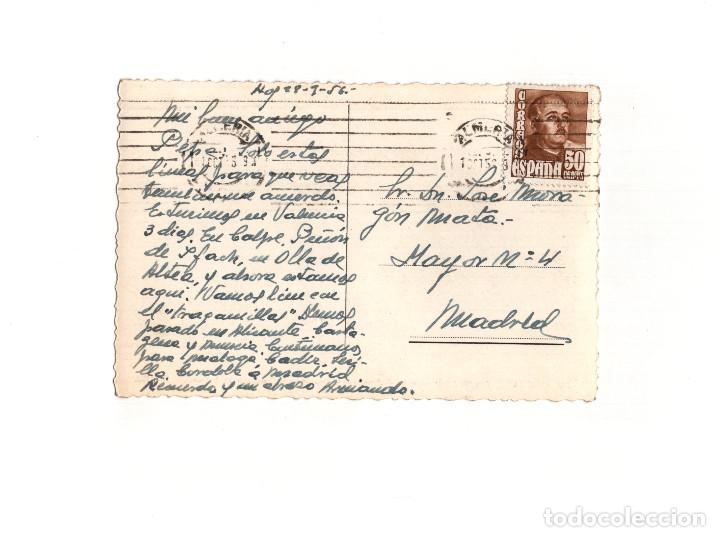 Hoy 28-9-56.-
Mi buen amigo
Pepe: Solo estas
lineas para que veas
también me acuerdo.
Estuvimos en Valencia
3 dias. En Calpe, Peñón
de Ifach, en Olla de
Altea, y ahora estamos
aqui. Vamos bien con
el "tragamillas" Hemos
parado en Alicante, Carta-
gena y Murcia. Continuamos
para Malaga, Cadiz, Sevi-
lla, Cordoba á Madrid
Recuerdo y un abrazo Armando.
ALMERIA
ALMERIA
CORREOS
ESPAÑA
50
Sr. Dn José Mora-
gón Mata.-
Mayor Nº 4
Madrid
todocoleccion
todocoleccion.net